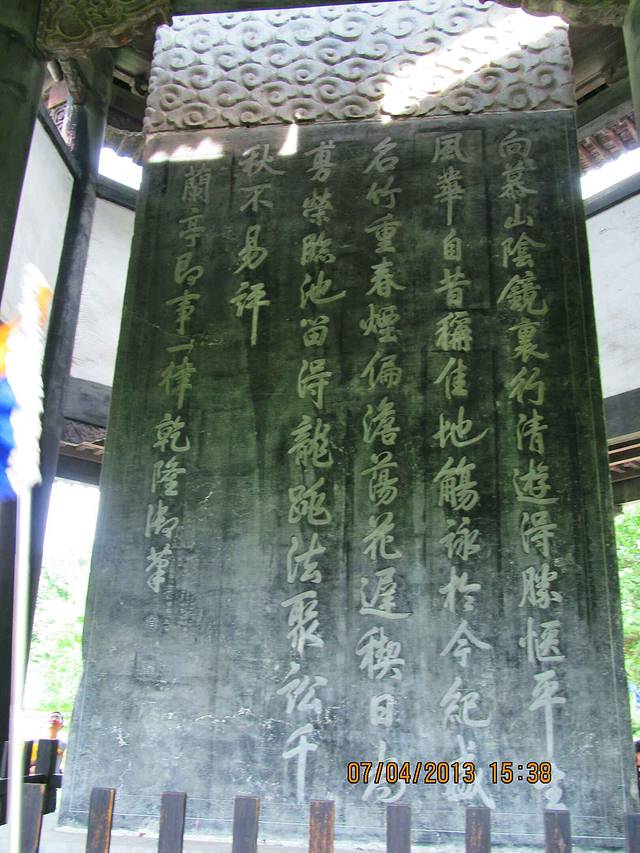 向慕山陰鏡裏行清遊得勝愜平生
風華自昔稱佳地觴詠於今紀盛
名竹重春煙偏澹蕩花遲禊日尚
旉榮臨池留得龍跳法聚訟千
秋不易評
蘭亭即事一律乾隆御筆
07/04/2013 15:38